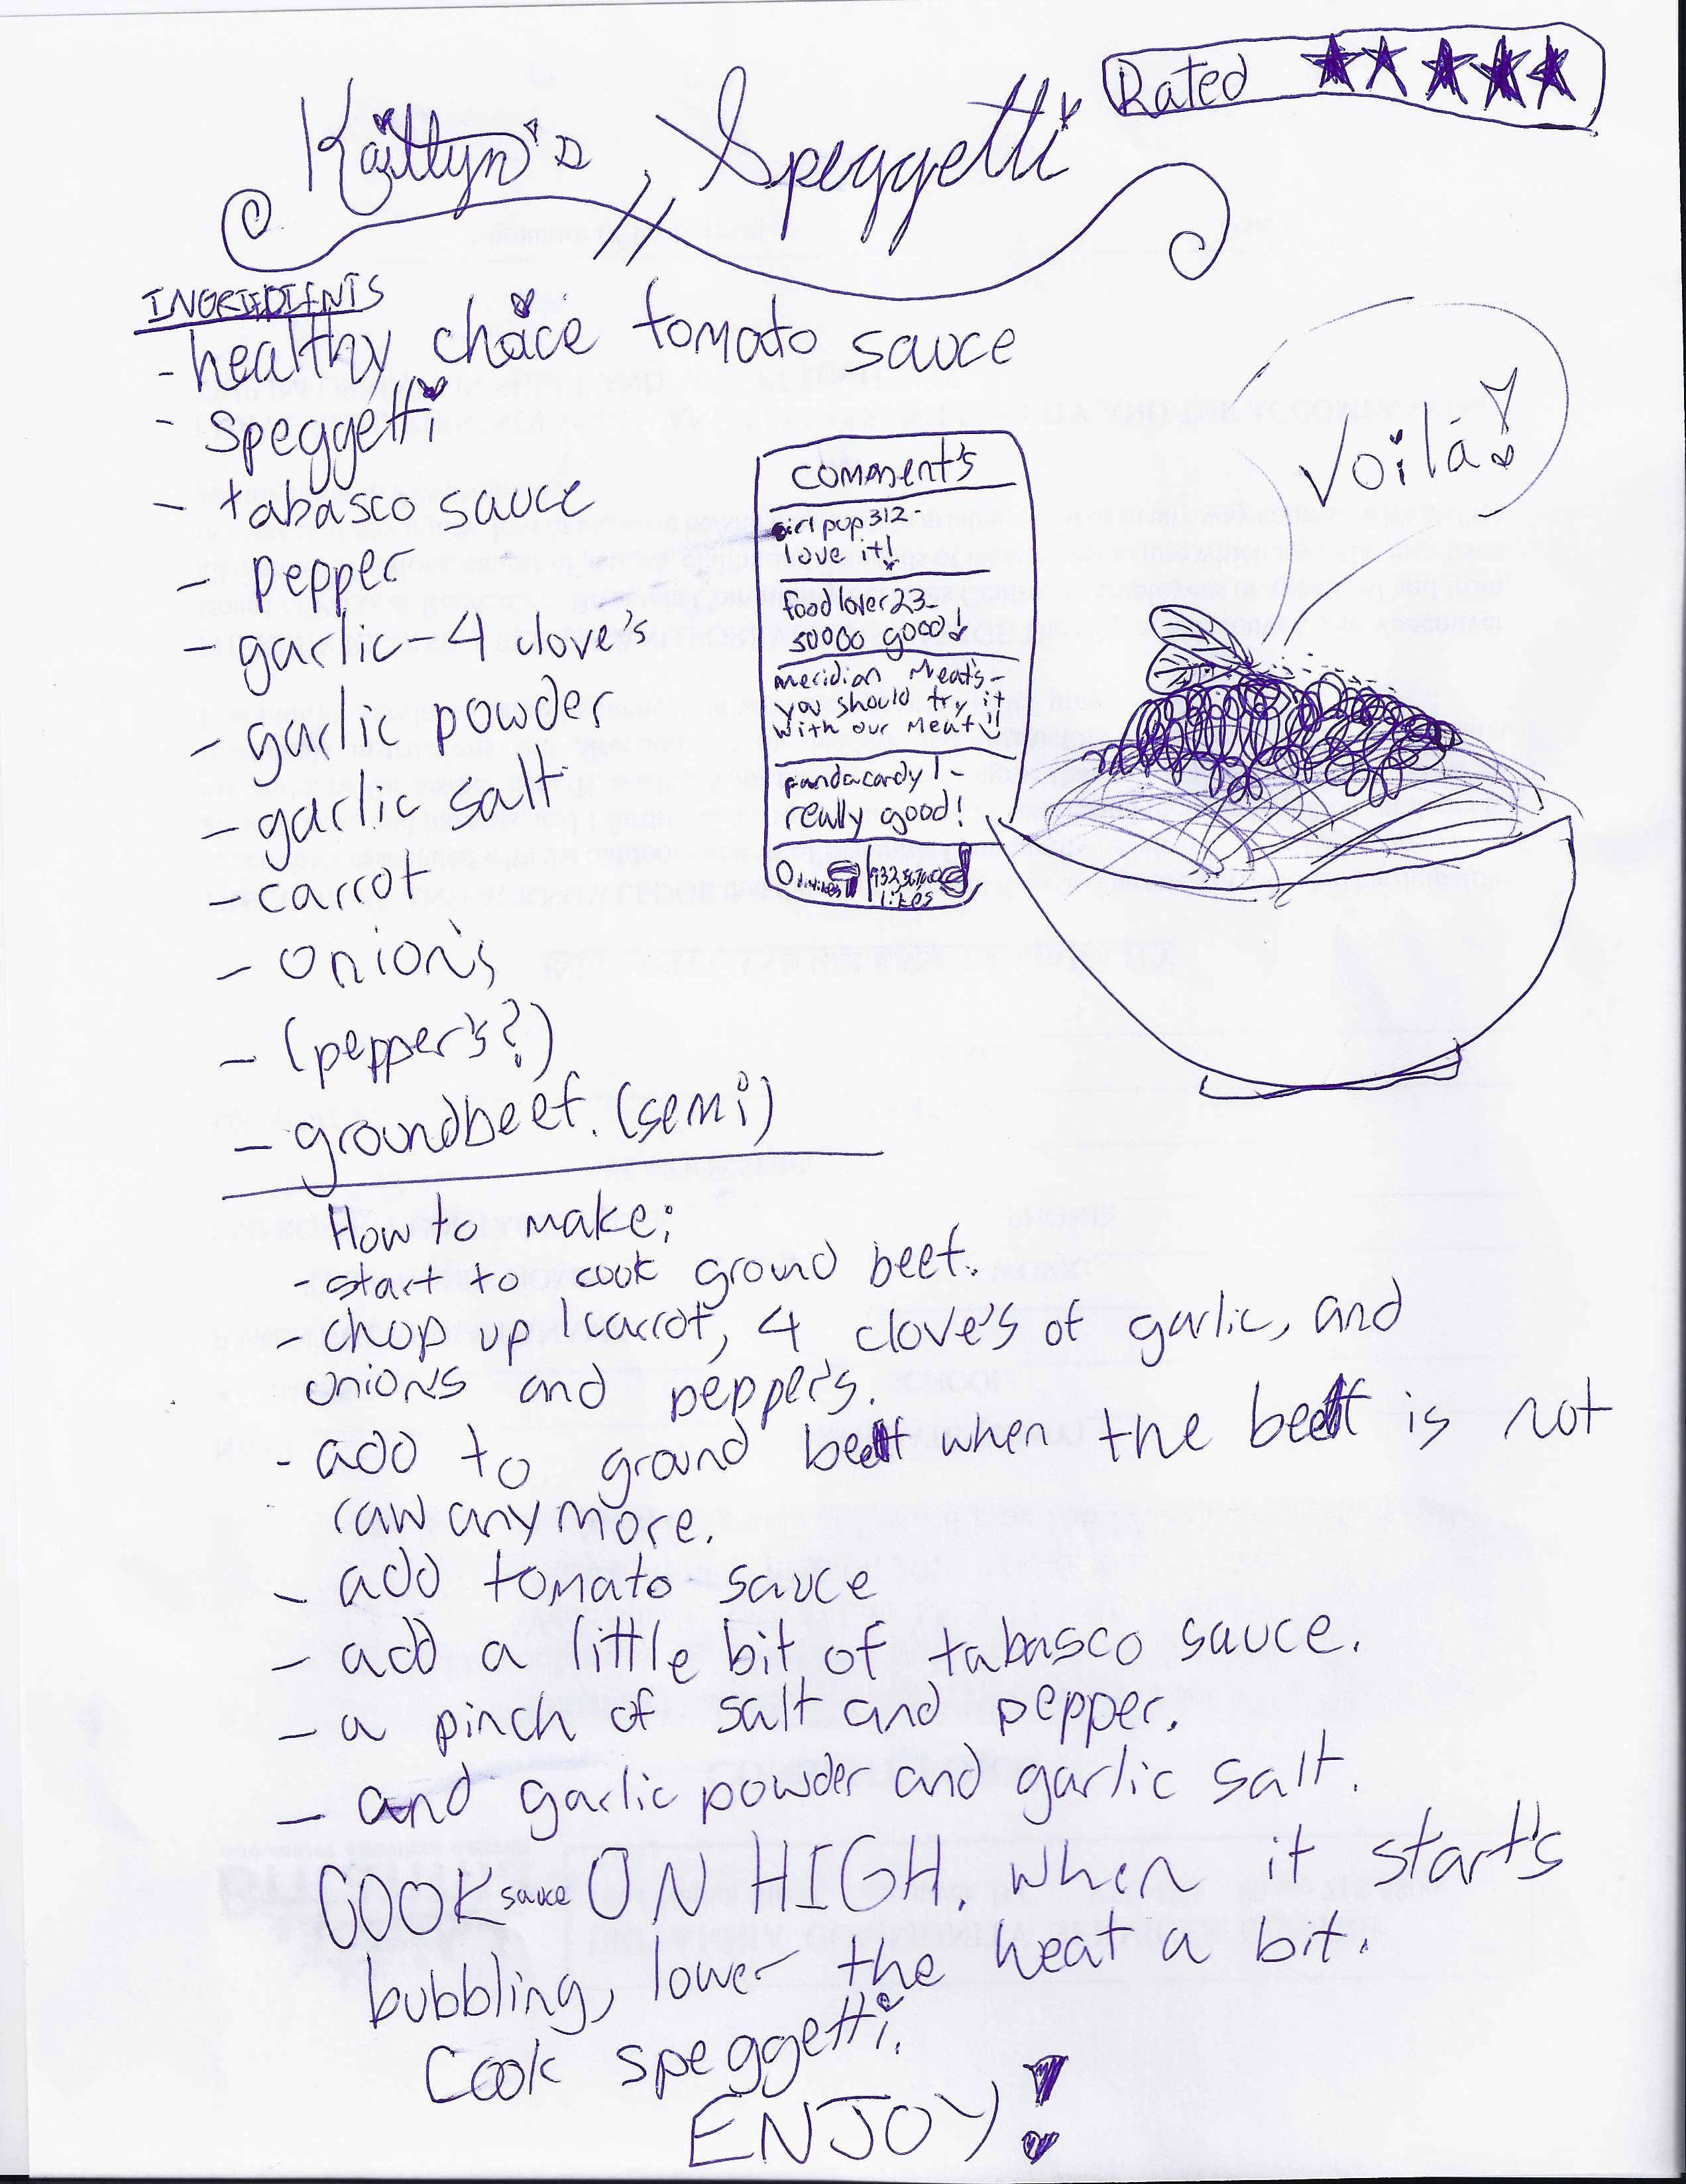 Rated ★★★★★
Kaitlyn's Speggetti
INGREDIENTS
- healthy choice tomato sauce
- speggetti
- tabasco sauce
- pepper
- garlic - 4 clove's
- garlic powder
- garlic salt
- carrot
- onion's
- (pepper's?)
- groundbeef. (semi)
comment's
girlpop312-
love it!
foodlover23-
soooo good!
meridian Meat's-
you should try it
with our Meat!!
pandacandy1-
really good!
0 dislikes
likes
Voilá!
How to make:
- start to cook ground beef.
- chop up 1 carrot, 4 clove's of garlic, and
onion's and pepper's.
- add to ground beef when the beef is not
raw any more.
- add tomato sauce
- add a little bit of tabasco sauce.
- a pinch of salt and pepper.
- and garlic powder and garlic salt.
COOK sauce ON HIGH. when it start's
bubbling, lower the heat a bit.
Cook speggetti.
ENJOY!